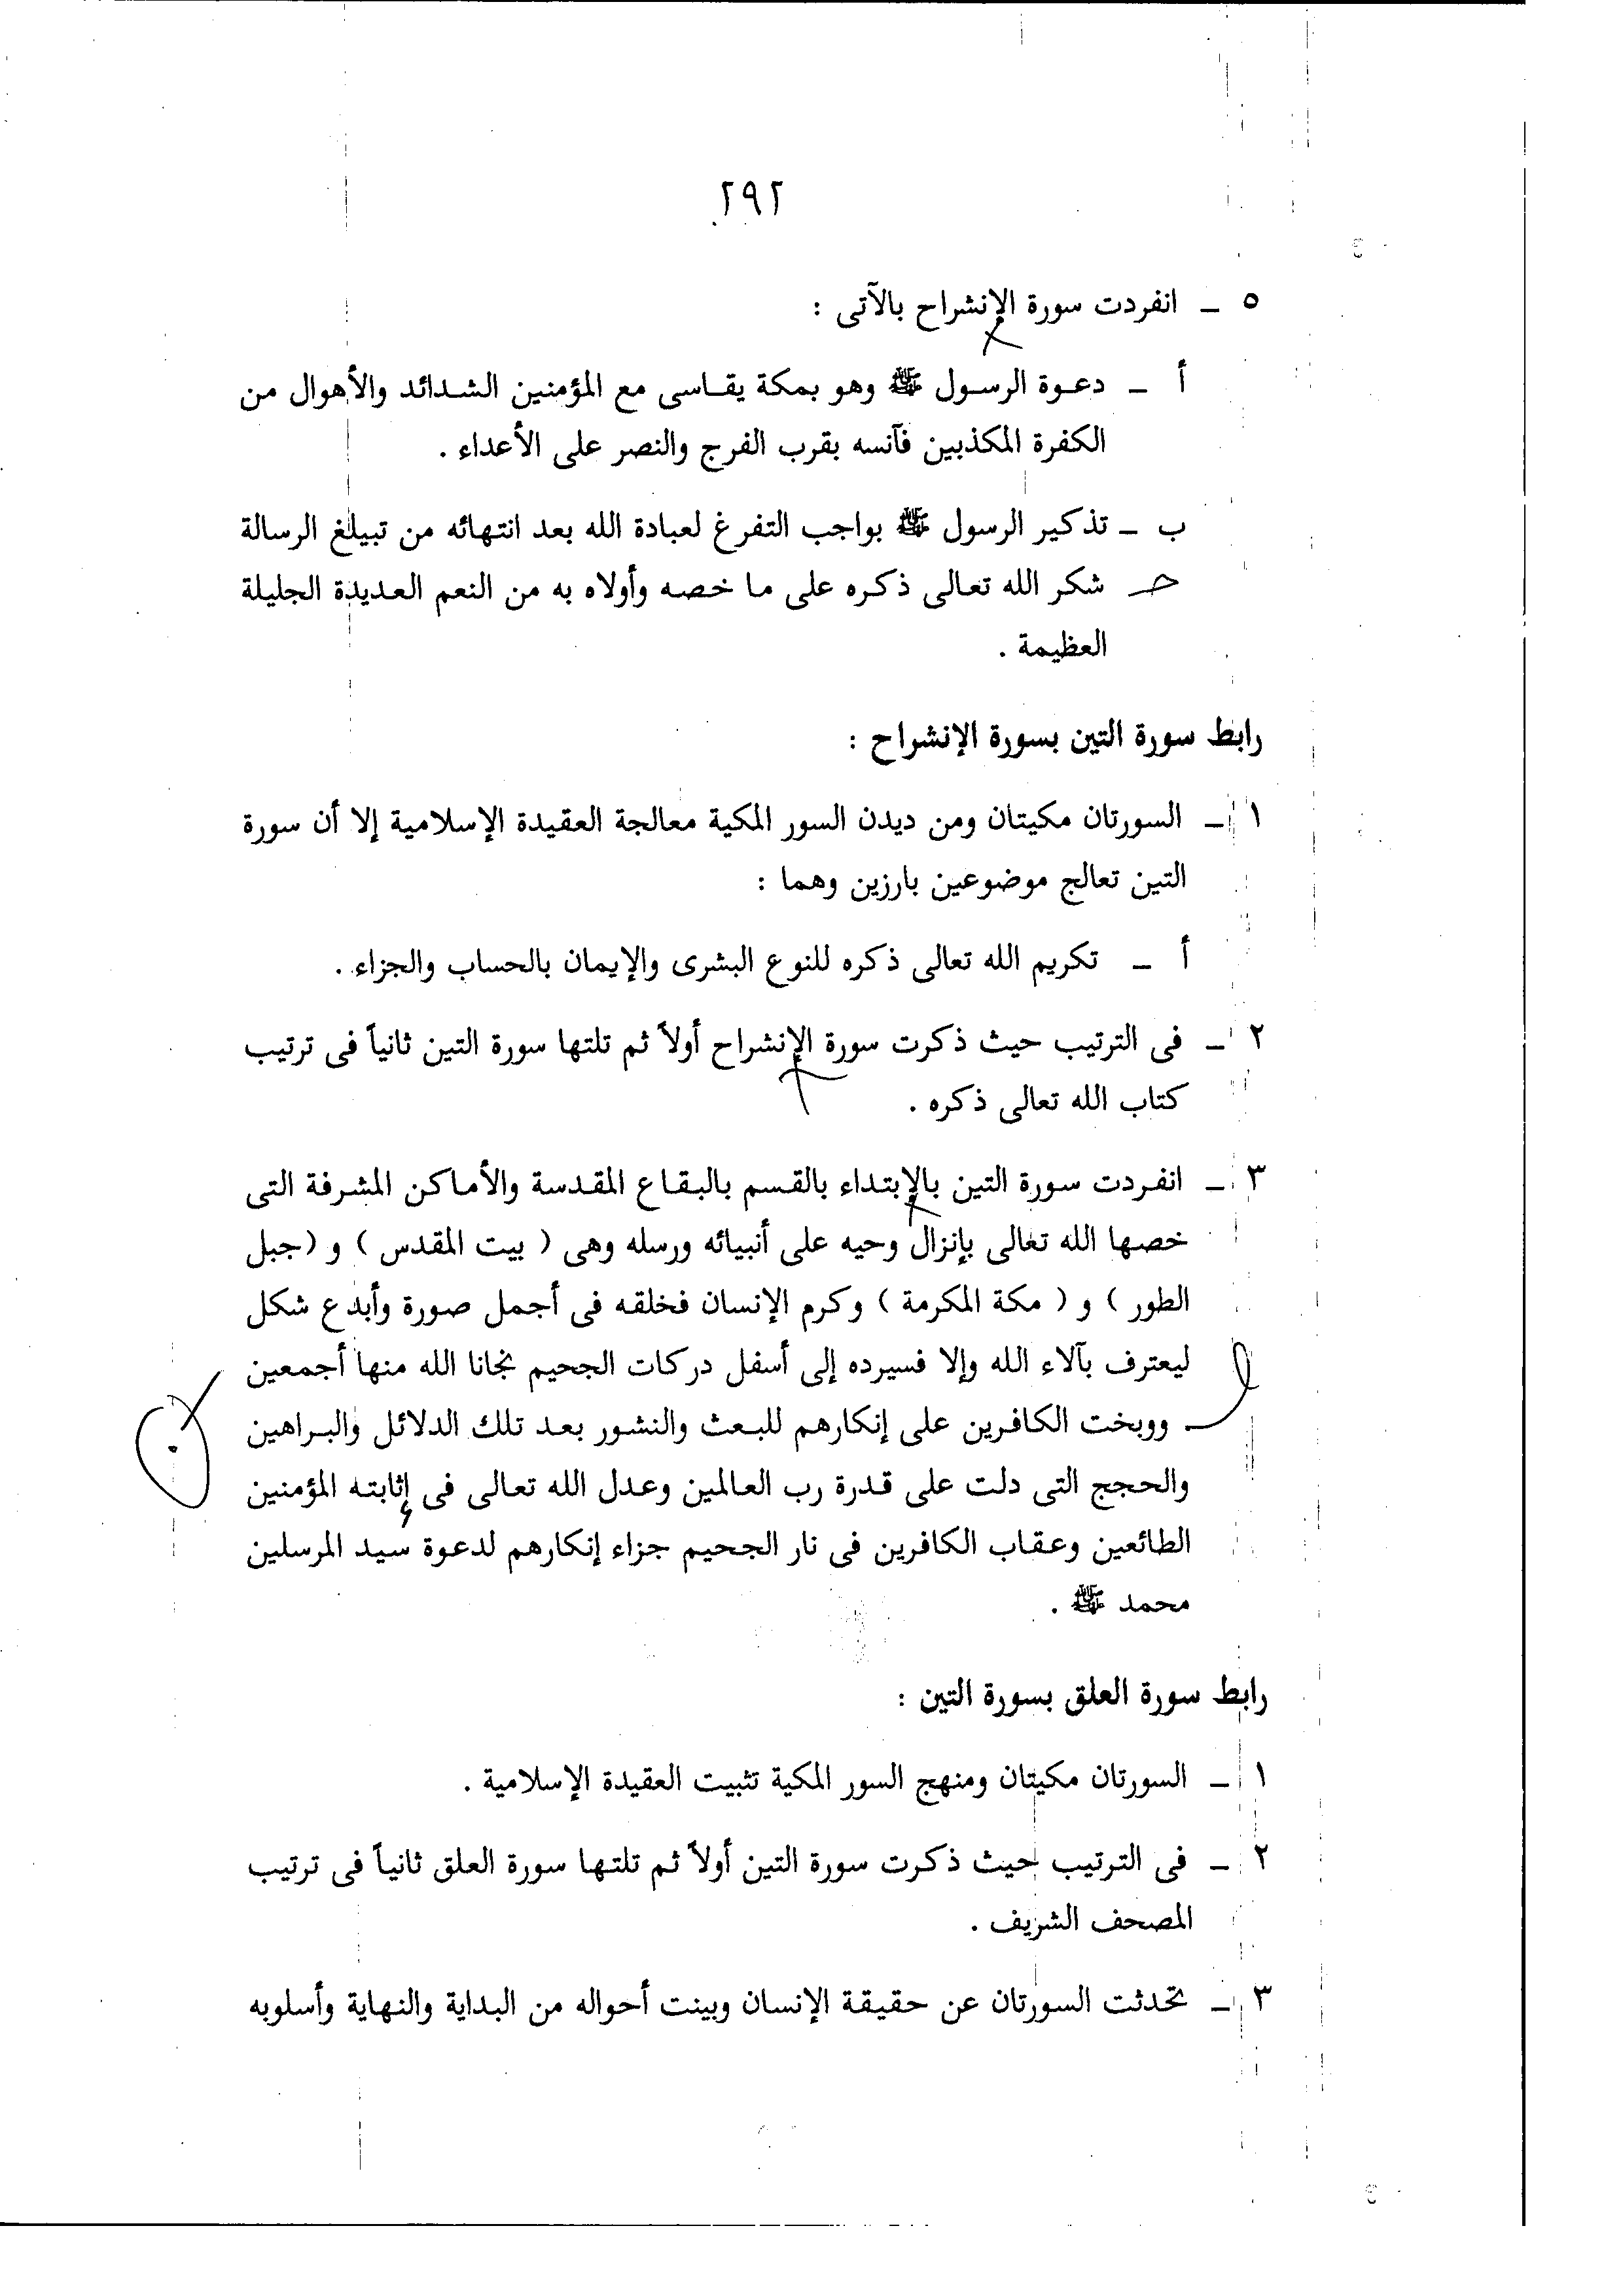 ٢٩٢
٥ ــ انفردت سورة الإنشراح بالآتى :
أ ــ دعوة الرسول ﷺ وهو بمكة يقاسى مع المؤمنين الشدائد والأهوال من
الكفرة المكذبين فآنسه بقرب الفرج والنصر على الأعداء .
ب ــ تذكير الرسول ﷺ بواجب التفرغ لعبادة الله بعد انتهائه من تبيلغ الرسالة
حـ شكر الله تعالى ذكره على ما خصه وأولاه به من النعم العديدة الجليلة
العظيمة .
رابط سورة التين بسورة الإنشراح :
١ ــ السورتان مكيتان ومن ديدن السور المكية معالجة العقيدة الإسلامية إلا أن سورة
التين تعالج موضوعين بارزين وهما :
أ ــ تكريم الله تعالى ذكره للنوع البشرى والإيمان بالحساب والجزاء .
٢ ــ فى الترتيب حيث ذكرت سورة الإنشراح أولاً ثم تلتها سورة التين ثانياً فى ترتيب
كتاب الله تعالى ذكره .
٣ ــ انفردت سورة التين بالإبتداء بالقسم بالبقاع المقدسة والأماكن المشرفة التى
خصها الله تعالى بإنزال وحيه على أنبيائه ورسله وهى ( بيت المقدس ) و (جبل
الطور ) و ( مكة المكرمة ) وكرم الإنسان فخلقه فى أجمل صورة وأبدع شكل
ليعترف بآلاء الله وإلا فسيرده إلى أسفل دركات الجحيم نجانا الله منها أجمعين
ووبخت الكافرين على إنكارهم للبعث والنشور بعد تلك الدلائل والبراهين
والحجج التى دلت على قدرة رب العالمين وعدل الله تعالى فى إثابته المؤمنين
الطائعين وعقاب الكافرين فى نار الجحيم جزاء إنكارهم لدعوة سيد المرسلين
محمد ﷺ .
رابط سورة العلق بسورة التين :
١ ــ السورتان مكيتان ومنهج السور المكية تثبيت العقيدة الإسلامية .
٢ ــ فى الترتيب حيث ذكرت سورة التين أولاً ثم تلتها سورة العلق ثانياً فى ترتيب
المصحف الشريف .
٣ ــ تحدثت السورتان عن حقيقة الإنسان وبينت أحواله من البداية والنهاية وأسلوبه